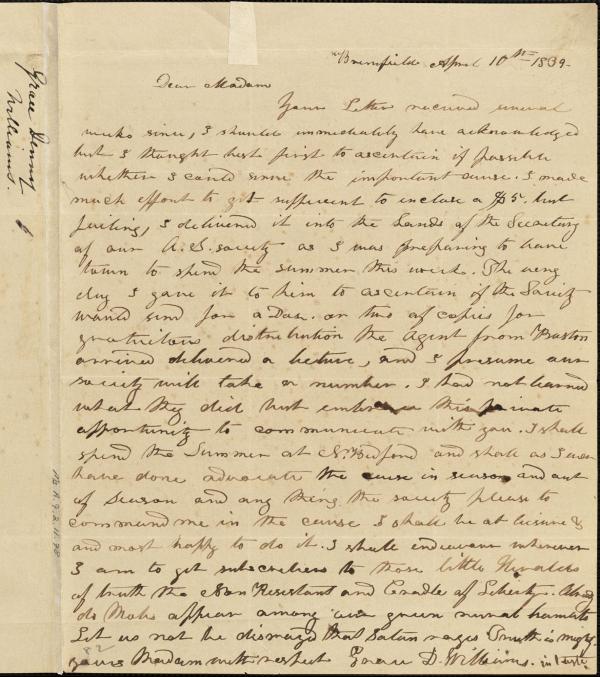 Brimfield April 10th 1839-
Dear Madam
Your Letter received several
weeks since, I should immediately have acknowledged
but I thought best first to ascertain if possible
whether I could serve the important cause. I made
much effort to get sufficient to inclose a $5. but
failing, I delivered it into the hands of the Secretary
of our A. S. society as I was preparing to leave
town to spend the summer this week. The very
day I gave it to him to ascertain if the Society
would send for a Doz. or two of copies for
gratuitous distribution the Agent from Boston
arrived delivered a lecture, and I presume our
society will take a number. I had not learned
what they did but embrace this private
opportunity to communicate with you. I shall
spend the Summer at N. Bedford and shall as I ever
have done advocate the cause in season and out
of Season and any thing the society please to
command me in the cause I shall be at leisure &
and most happy to do it. I shall endeavour wherever
I am to get subscribers to those little Heralds
of truth the Non Resistant and Cradle of Liberty.
do Mobs appear among our green rural hamlets
Let us not be dismayed that Satan rages Truth is mighty.
yours Madam with respect Grace D. Williams.
Grace Denny
Williams.